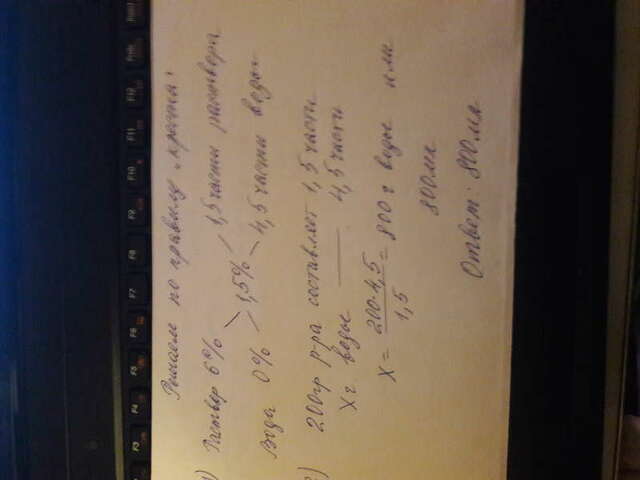 Решаем по правилу „креста“
1) Раствор 6% 1,5 части раствора
1,5%
Вода 0% 4,5 части воды
2) 200гр р-ра составляет 1,5 части
Xг. воды —— 4,5 части
X = 200·4,5 / 1,5 = 800 г воды или
800мл
Ответ: 800мл
F3
F4
F5
F6
F7
F8
F9
F10
F11
F12